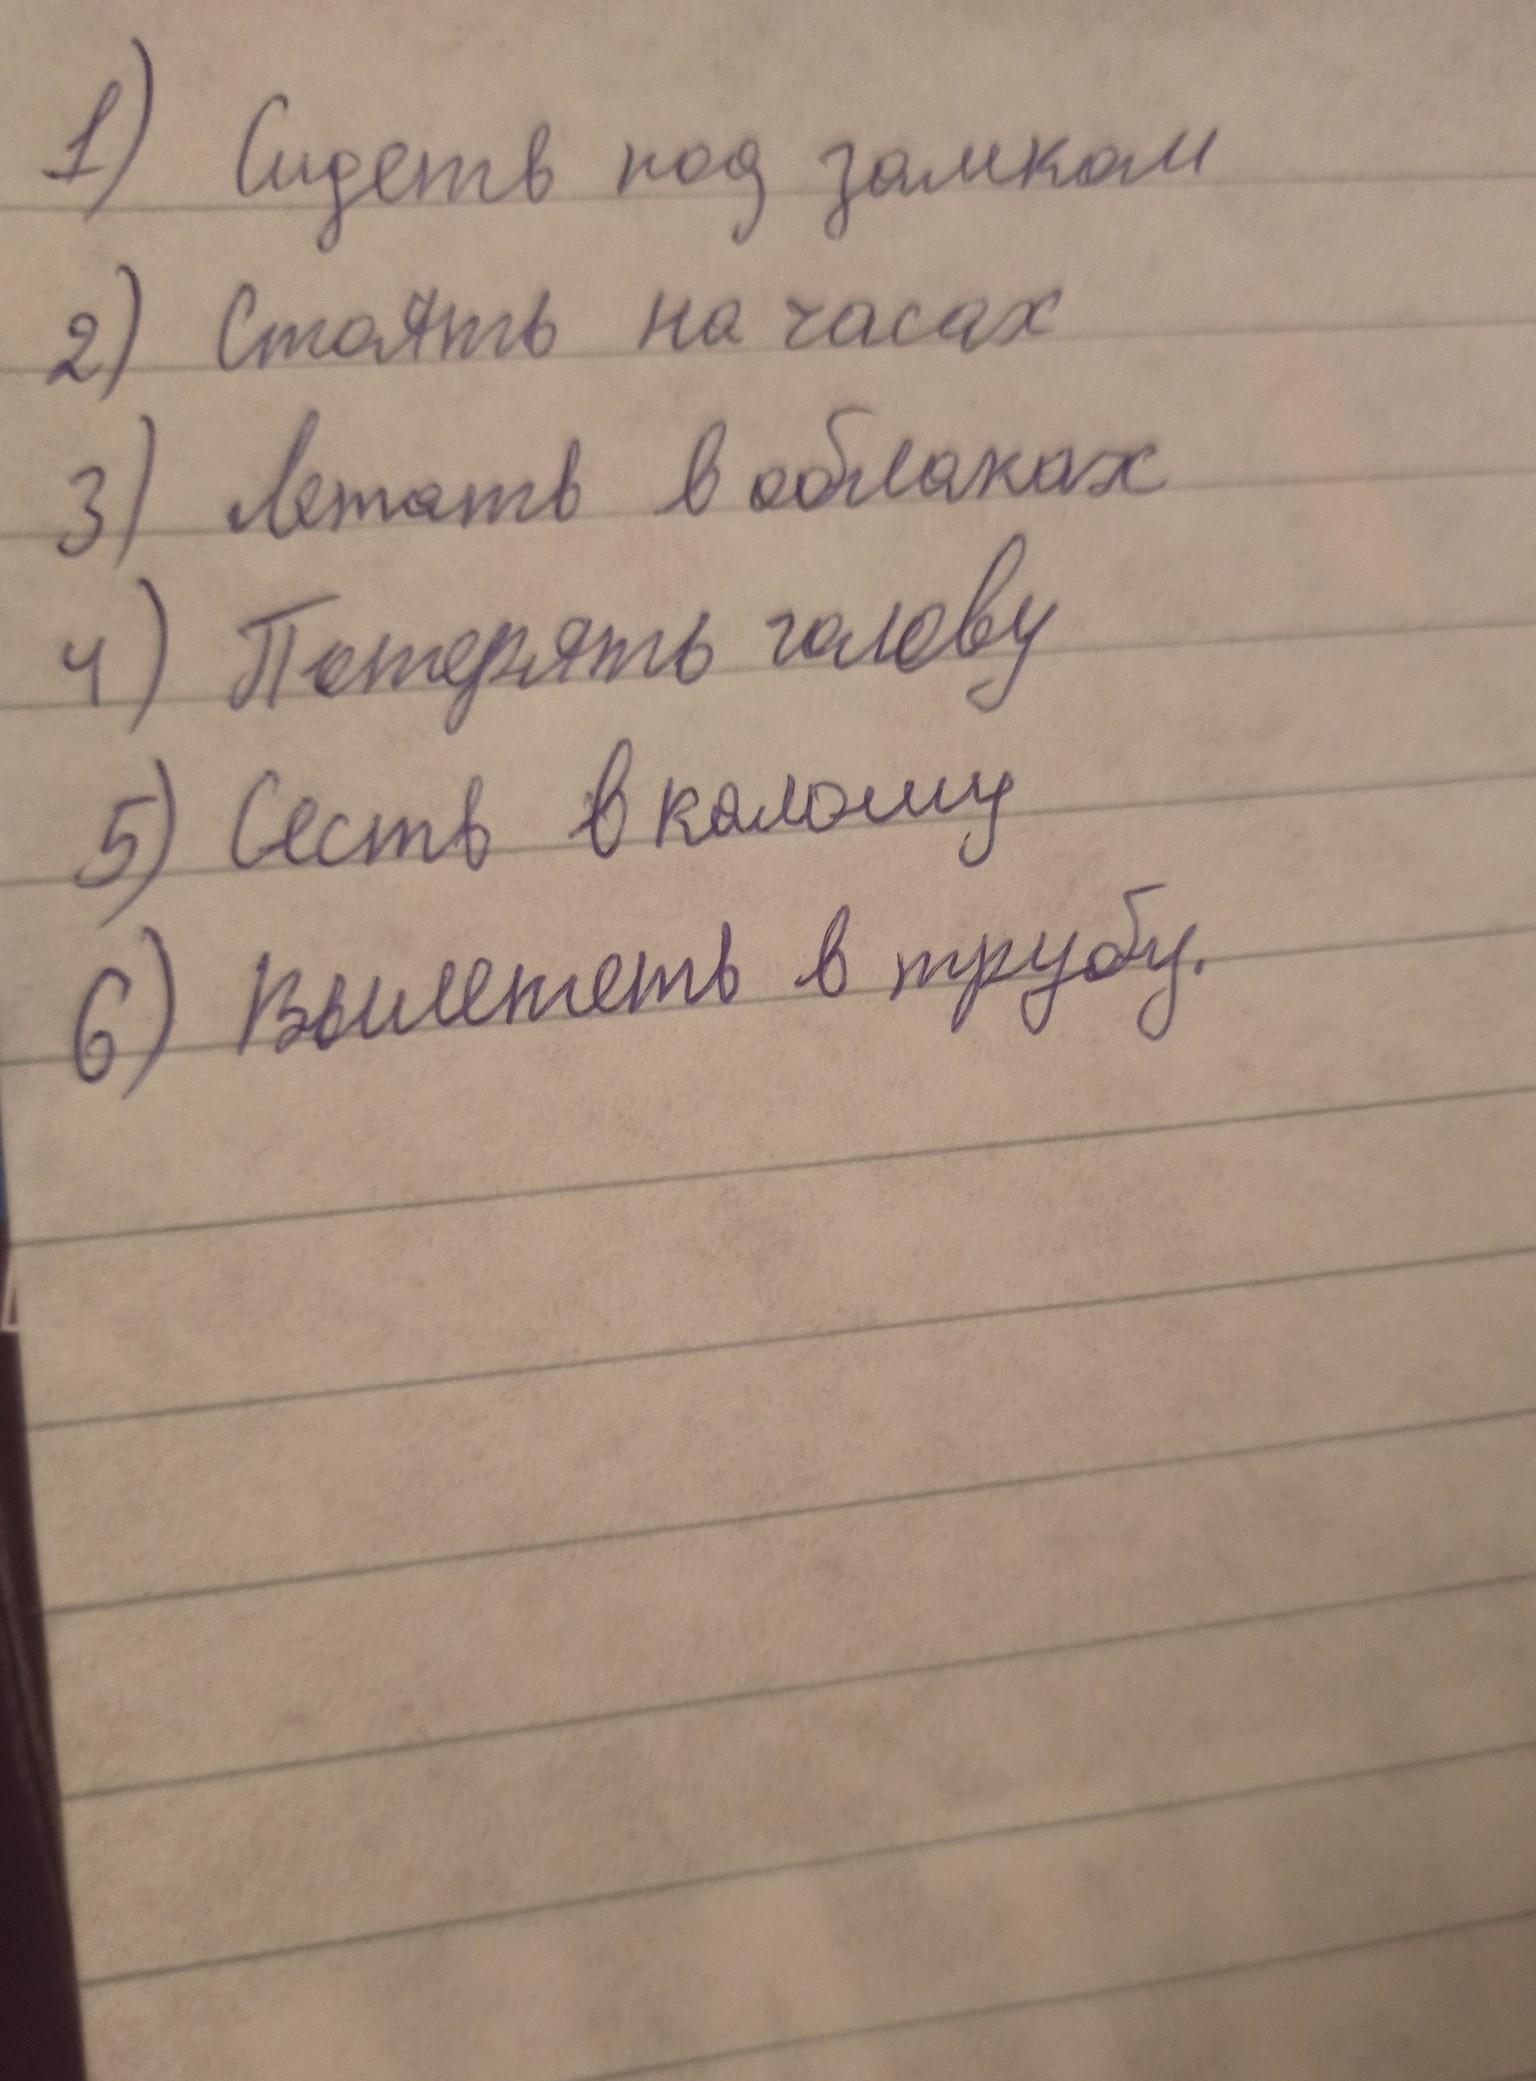 1) Сидеть под замком
2) Стоять на часах
3) Летать в облаках
4) Потерять голову
5) Сесть в калошу
6) Вылететь в трубу.